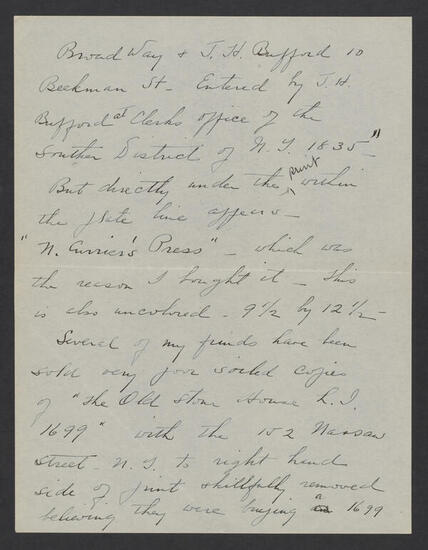 Broad Way & J. H. Bufford 10
Beekman St - Entered by J. H.
Bufford at Clerks office of the
Southern District of N. Y. 1835 - "
But directly under the print within
the plate line appears -
"N. Currier's Press" - which was
the reason I bought it - This
is also uncolored - 9 1/2 by 12 1/2 -
Several of my friends have been
sold very poor soiled copies
of "The Old Stone House L. I.
1699" with the 152 Nassau
Street - N. Y. to right hand
side of print skillfully removed
believing they were buying a 1699